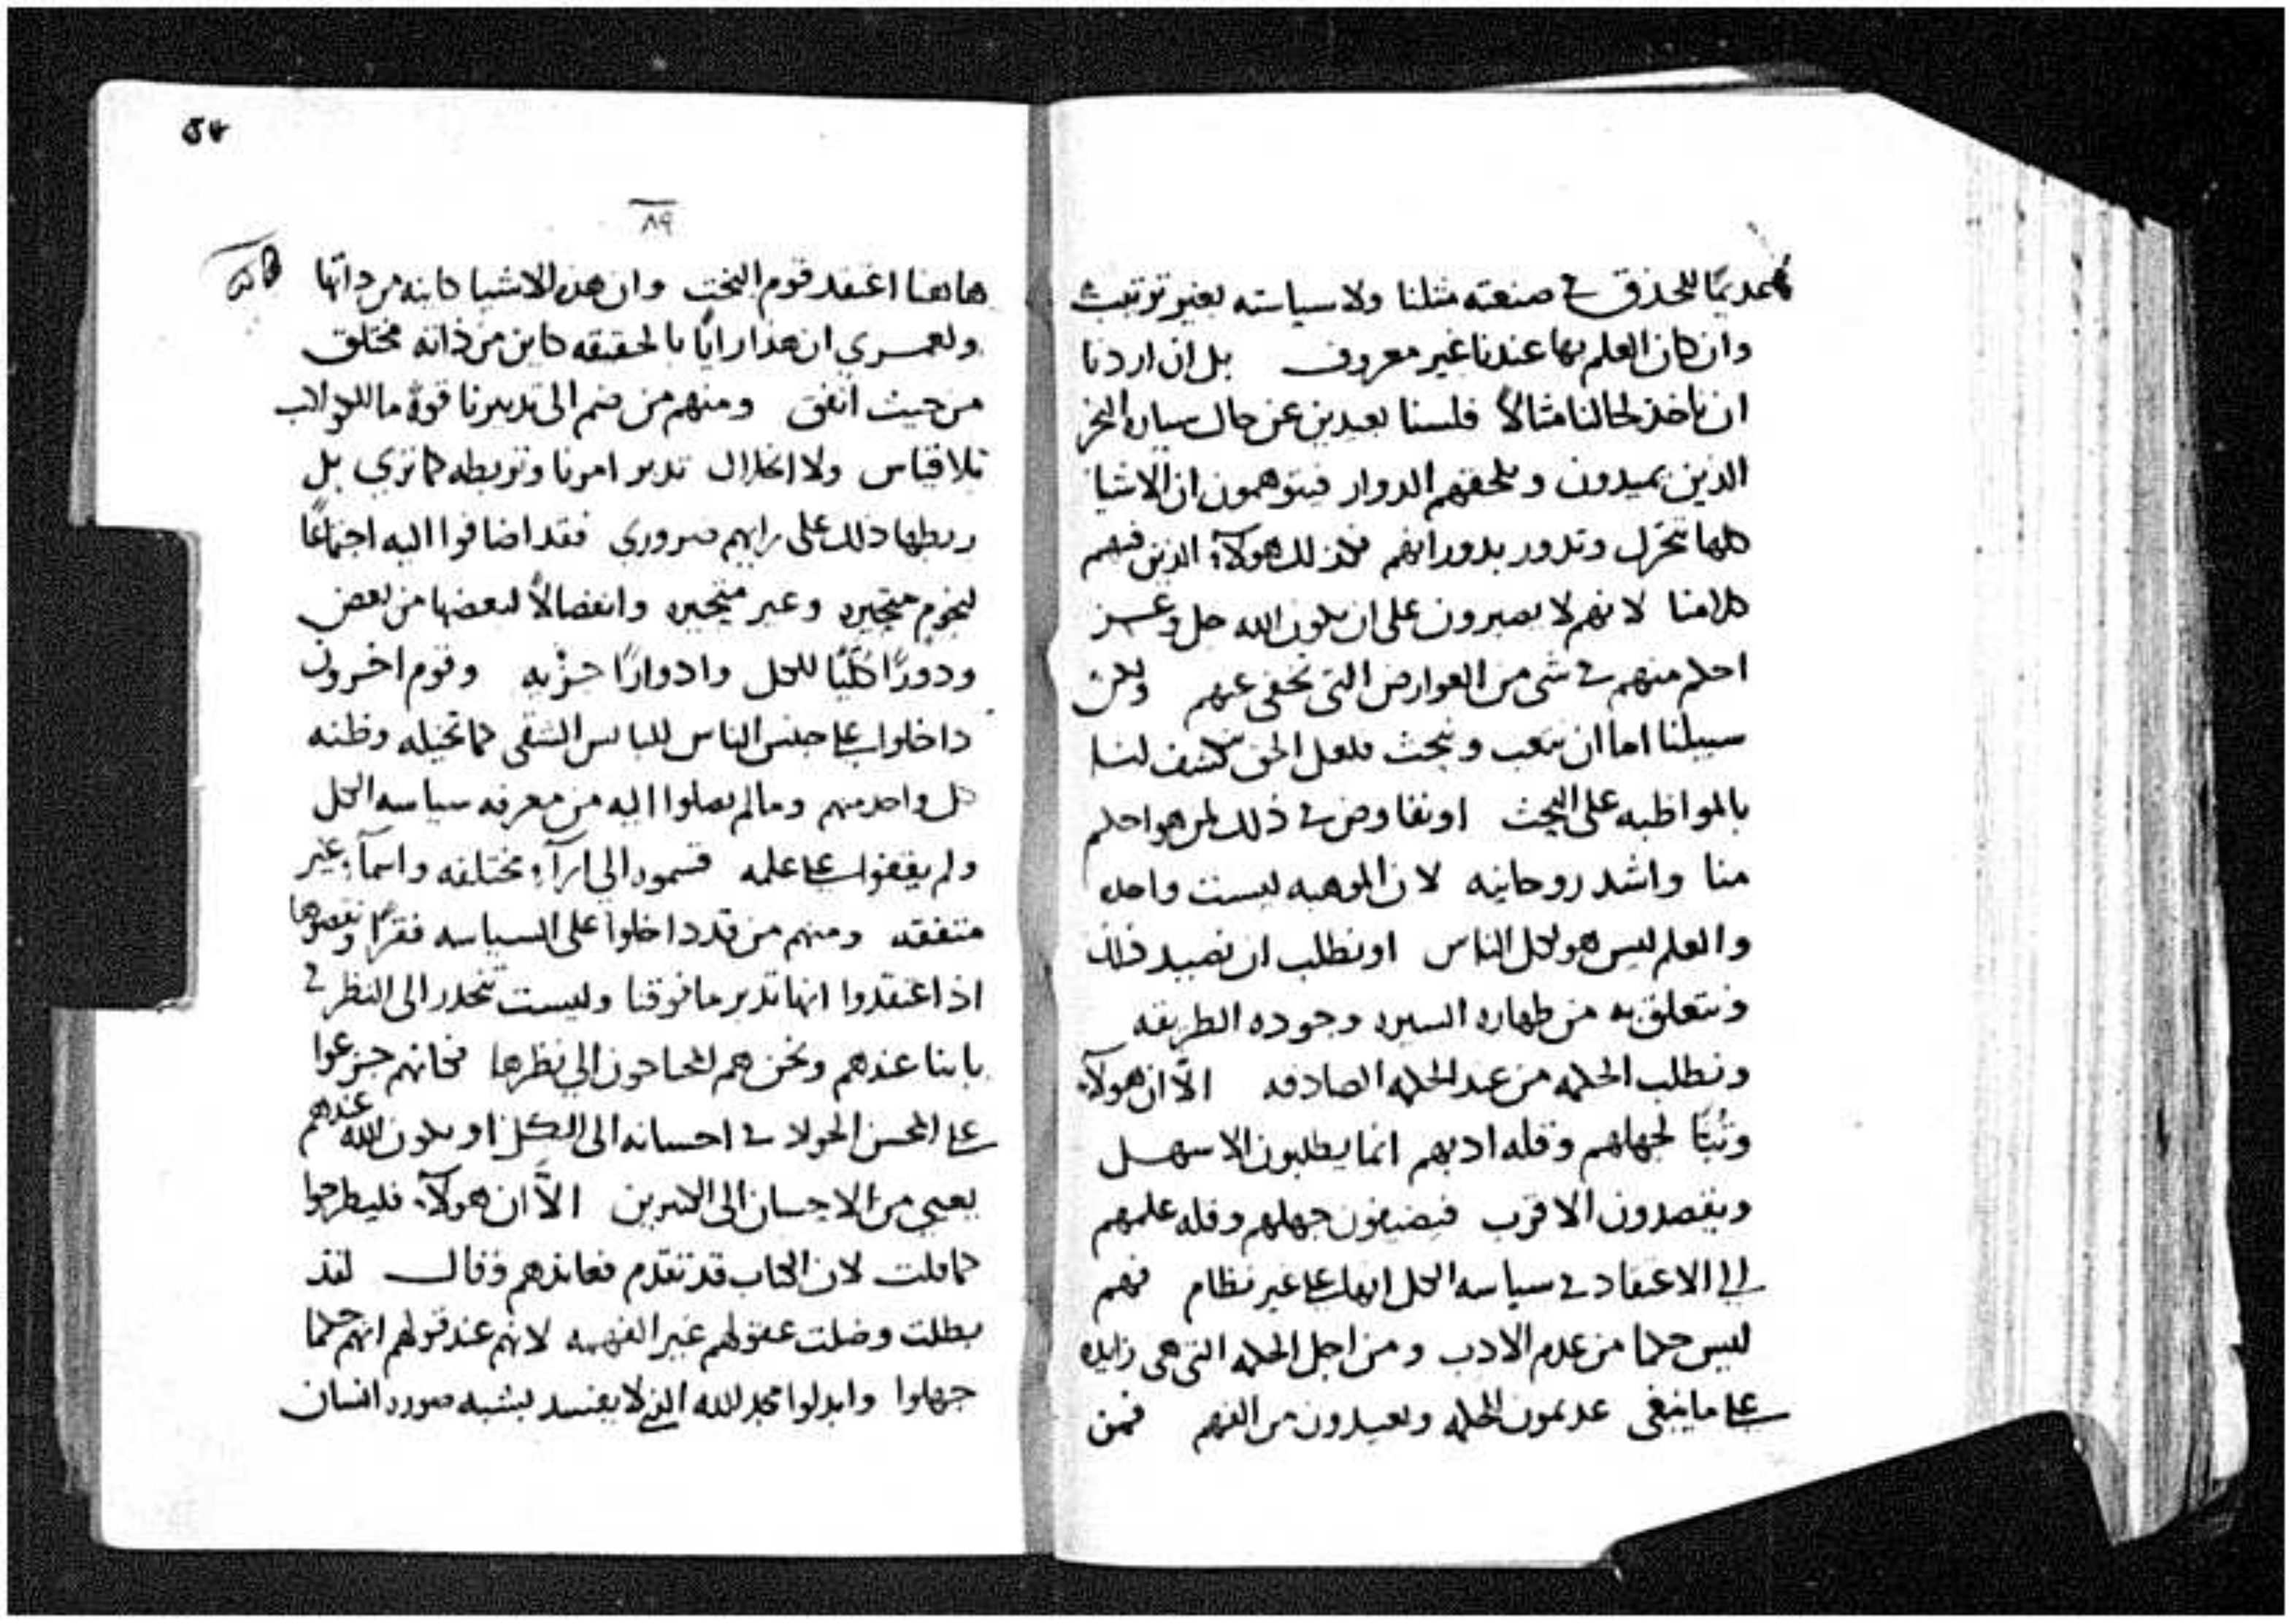 عديمًا للحذق في صنعته مثلنا ولا سياسته بغير ترتيب
وان كان العلم بها عندنا غير معروف بل ان اردنا
ان ناخذ لحالنا مثالاً فلسنا بعيدين عن حال سياره البحر
الذين يميدون ويلحقهم الدوار فيتوهمون ان الاشيا
كلها تتحرك وتدور بدورانهم فكذلك هولآء الذين فيهم
كلامنا لانهم لا يصبرون على ان يكون الله جل وعز
احكم منهم في شي من العوارض التي تخفى عنهم ولكن
سبيلنا اما ان نتعب ونبحث فلعل الحق ينكشف لنا
بالمواظبه على البحث او نفاوض في ذلك لمن هو احكم
منا واشد روحانيه لان الموهبه ليست واحده
والعلم ليس هو لكل الناس او نطلب ان نصيد ذلك
ونتعلق به من طهاره السيره وجوده الطريقه
ونطلب الحكمه من عند الحكمه الصادقه الاّ ان هولآء
وثبًا لجهلهم وقله ادبهم انما يطلبون الاسهل
ويقصدون الاقرب فيضيفون جهلهم وقله علمهم
الي الاعتقاد في سياسه الكل انها على غير نظام فهم
ليس حكما من عدم الادب ومن اجل الحكمه التي هي زايده
على ما ينبغي عديمون الحكمه وبعيدون من الفهم فمن
٥٧
٨٩
هاهنا اعتقد قوم البخت وان هذه الاشيا كاينه من ذاتها
ولعمري ان هذا رايًا بالحقيقه كاين من ذاته مختلق
من حيث اتفق ومنهم من ضم الى تدبيرنا قوة ما للكواكب
بلا قياس ولا انحلال تدبر امرنا وتربطه كما ترى بل
ربطها ذلك على رايهم ضروري فقد اضافوا اليه اجتماعًا
لنجوم متحيره وغير متحيره وانفصالاً لبعضها من بعض
ودورًا كليًا للكل وادوارًا جزيه وقوم اخرون
داخلوا على جنس الناس البايس الشقى كما تخيله وظنه
كل واحد منهم ومالم يصلوا اليه من معرفه سياسه الكل
ولم يقفوا على علمه قسموه الي ارآء مختلفه واسمآء غير
متفقه ومنهم من قد داخلوا على السياسه فقرًا ونقصوها
اذ اعتقدوا انها تدبر ما فوقنا وليست تنحدر الى النظر في
بابنا عندهم ونحن هم المحتاجون الي نظرها فكانهم جزعوا
على المحسن الجواد في احسانه الى الكل او يكون الله عندهم
يعيي من الاحسان الى الكثيرين الاّ ان هولآء فليطرحوا
كما قلت لان الكتاب قد تقدم فعاندهم وقال لقد
بطلت وضلت عقولهم غير الفهمه لانهم عند قولهم انهم حكما
جهلوا وابدلوا مجد الله الذي لا يفسد بشبه صورة انسان